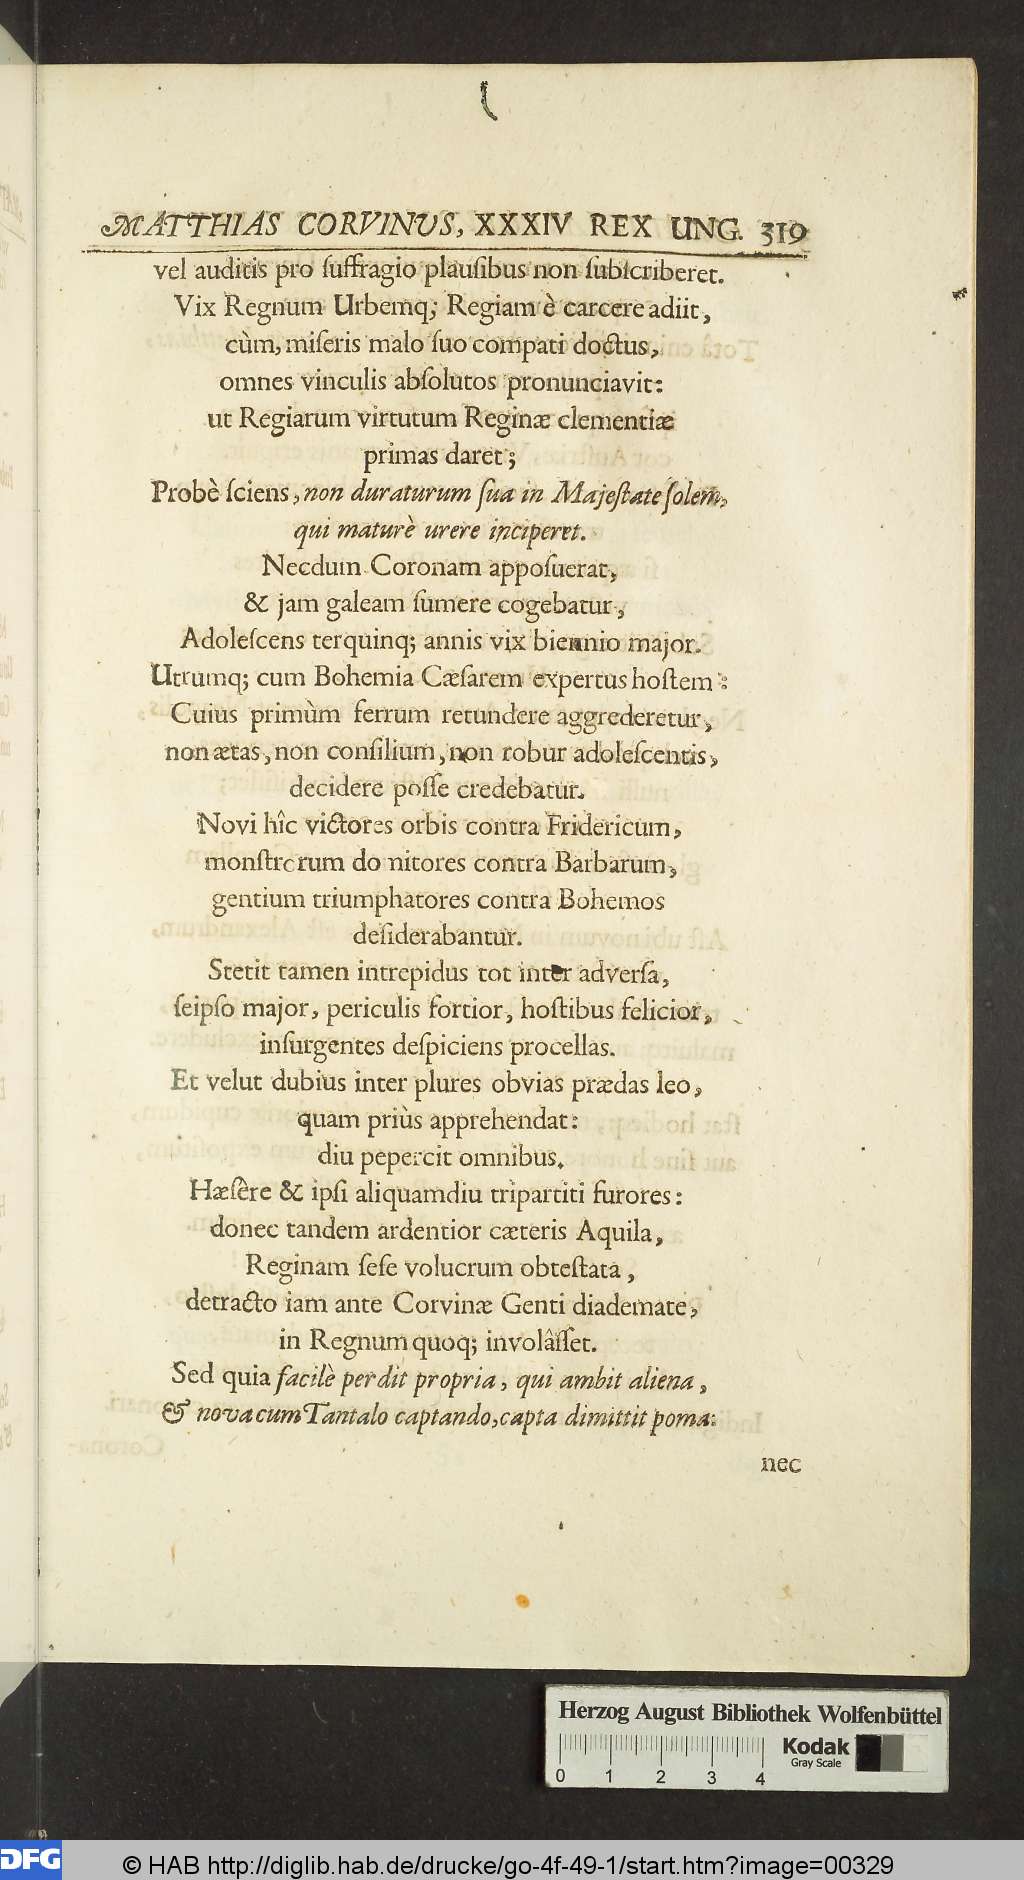 MATTHIAS CORVINUS, XXXIV REX UNG. 319
vel auditis pro ſuffragio plauſibus non ſubſcriberet.
Vix Regnum Urbemq; Regiam è carcere adiit,
cùm, miſeris malo ſuo compati doctus,
omnes vinculis abſolutos pronunciavit:
ut Regiarum virtutum Reginæ clementiæ
primas daret;
Probè ſciens, non duraturum ſua in Majeſtate ſolem,
qui maturè urere inciperet.
Necdum Coronam appoſuerat,
& jam galeam ſumere cogebatur,
Adoleſcens terquinq; annis vix biennio major.
Utrumq; cum Bohemia Cæſarem expertus hoſtem:
Cuius primùm ferrum retundere aggrederetur,
non ætas, non conſilium, non robur adoleſcentis,
decidere poſſe credebatur.
Novi hîc victores orbis contra Fridericum,
monſtrorum do nitores contra Barbarum,
gentium triumphatores contra Bohemos
deſiderabantur.
Stetit tamen intrepidus tot inter adverſa,
ſeipſo major, periculis fortior, hoſtibus felicior,
inſurgentes deſpiciens procellas.
Et velut dubius inter plures obvias prædas leo,
quam priùs apprehendat:
diu pepercit omnibus.
Hæſêre & ipſi aliquamdiu tripartiti furores:
donec tandem ardentior cæteris Aquila,
Reginam ſeſe volucrum obteſtata,
detracto iam ante Corvinæ Genti diademate,
in Regnum quoq; involâſſet.
Sed quia facilè perdit propria, qui ambit aliena,
& nova cum Tantalo captando, capta dimittit poma:
nec
Herzog August Bibliothek Wolfenbüttel
Kodak
Gray Scale
0 1 2 3 4
DFG © HAB http://diglib.hab.de/drucke/go-4f-49-1/start.htm?image=00329